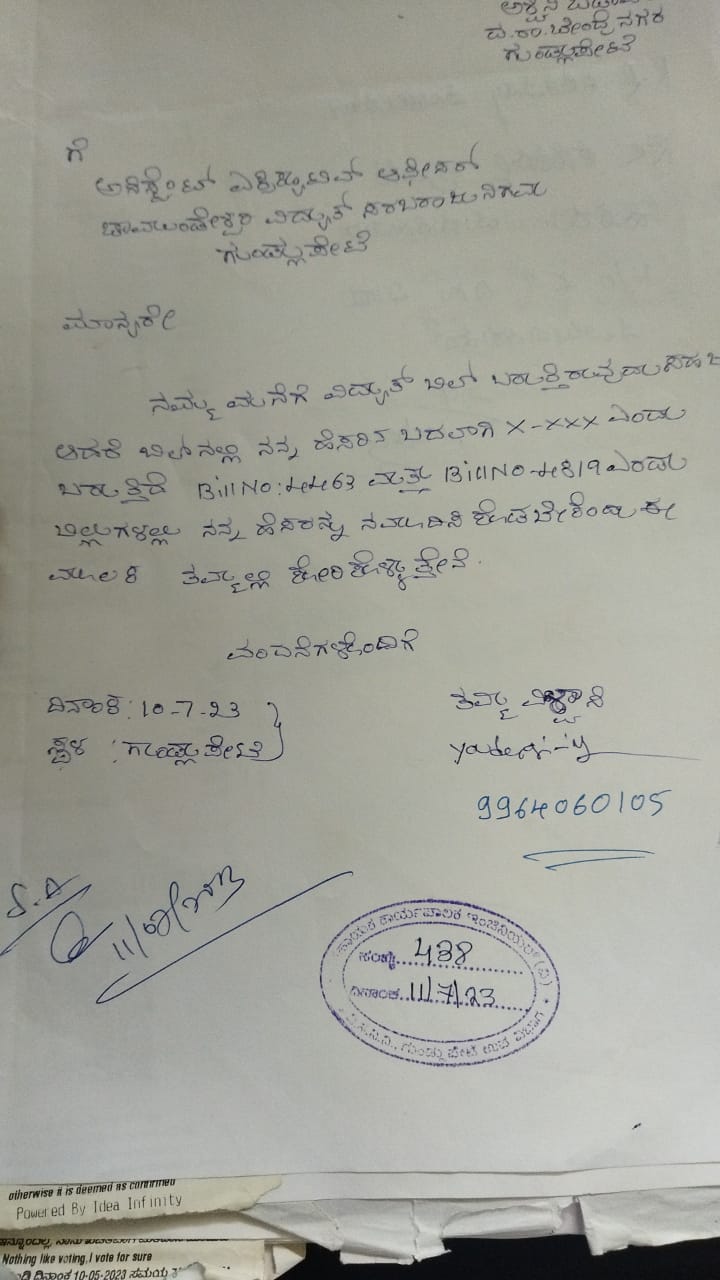 ದ.ರಾ.ಬೇಂದ್ರೆ ನಗರ
ಗುಂಡ್ಲುಪೇಟೆ
ಗೆ
ಅಸಿಸ್ಟೆಂಟ್ ಎಕ್ಸಿಕ್ಯುಟಿವ್ ಆಫೀಸರ್
ಚಾಮುಂಡೇಶ್ವರಿ ವಿದ್ಯುತ್ ಸರಬರಾಜು ನಿಗಮ
ಗುಂಡ್ಲುಪೇಟೆ
ಮಾನ್ಯರೇ
ನಮ್ಮ ಮನೆಗೆ ವಿದ್ಯುತ್ ಬಿಲ್ ಬರುತ್ತಿರುವುದು ಸಹಜ
ಆದರೆ ಬಿಲ್ ನಲ್ಲಿ ನನ್ನ ಹೆಸರಿನ ಬದಲಾಗಿ X-XXX ಎಂದು
ಬರುತ್ತಿದೆ Bill NO: 4463 ಮತ್ತು Bill NO-4819 ಎರಡು
ಬಿಲ್ಲುಗಳಲ್ಲು ನನ್ನ ಹೆಸರನ್ನು ನಮೂದಿಸಿ ಕೊಡಬೇಕೆಂದು ಈ
ಮೂಲಕ ತಮ್ಮಲ್ಲಿ ಕೋರಿಕೊಳ್ಳುತ್ತೇನೆ.
ವಂದನೆಗಳೊಂದಿಗೆ
ದಿನಾಂಕ: 10-7-23
ತಮ್ಮ ವಿಶ್ವಾಸಿ
ಸ್ಥಳ : ಗುಂಡ್ಲುಪೇಟೆ
9964060105
ಸಹಾಯಕ ಕಾರ್ಯಪಾಲಕ ಇಂಜಿನಿಯರ್ (ವಿ)
ಸಂಖ್ಯೆ 438
ದಿನಾಂಕ 11/7/23
ಗುಂಡ್ಲುಪೇಟೆ ಉಪ ವಿಭಾಗ
otherwise it is deemed as confirmed
Powered By Idea Infinity
Nothing like voting, I vote for sure
ದಿನಾಂಕ 10-05-2023 ಸಮಯ